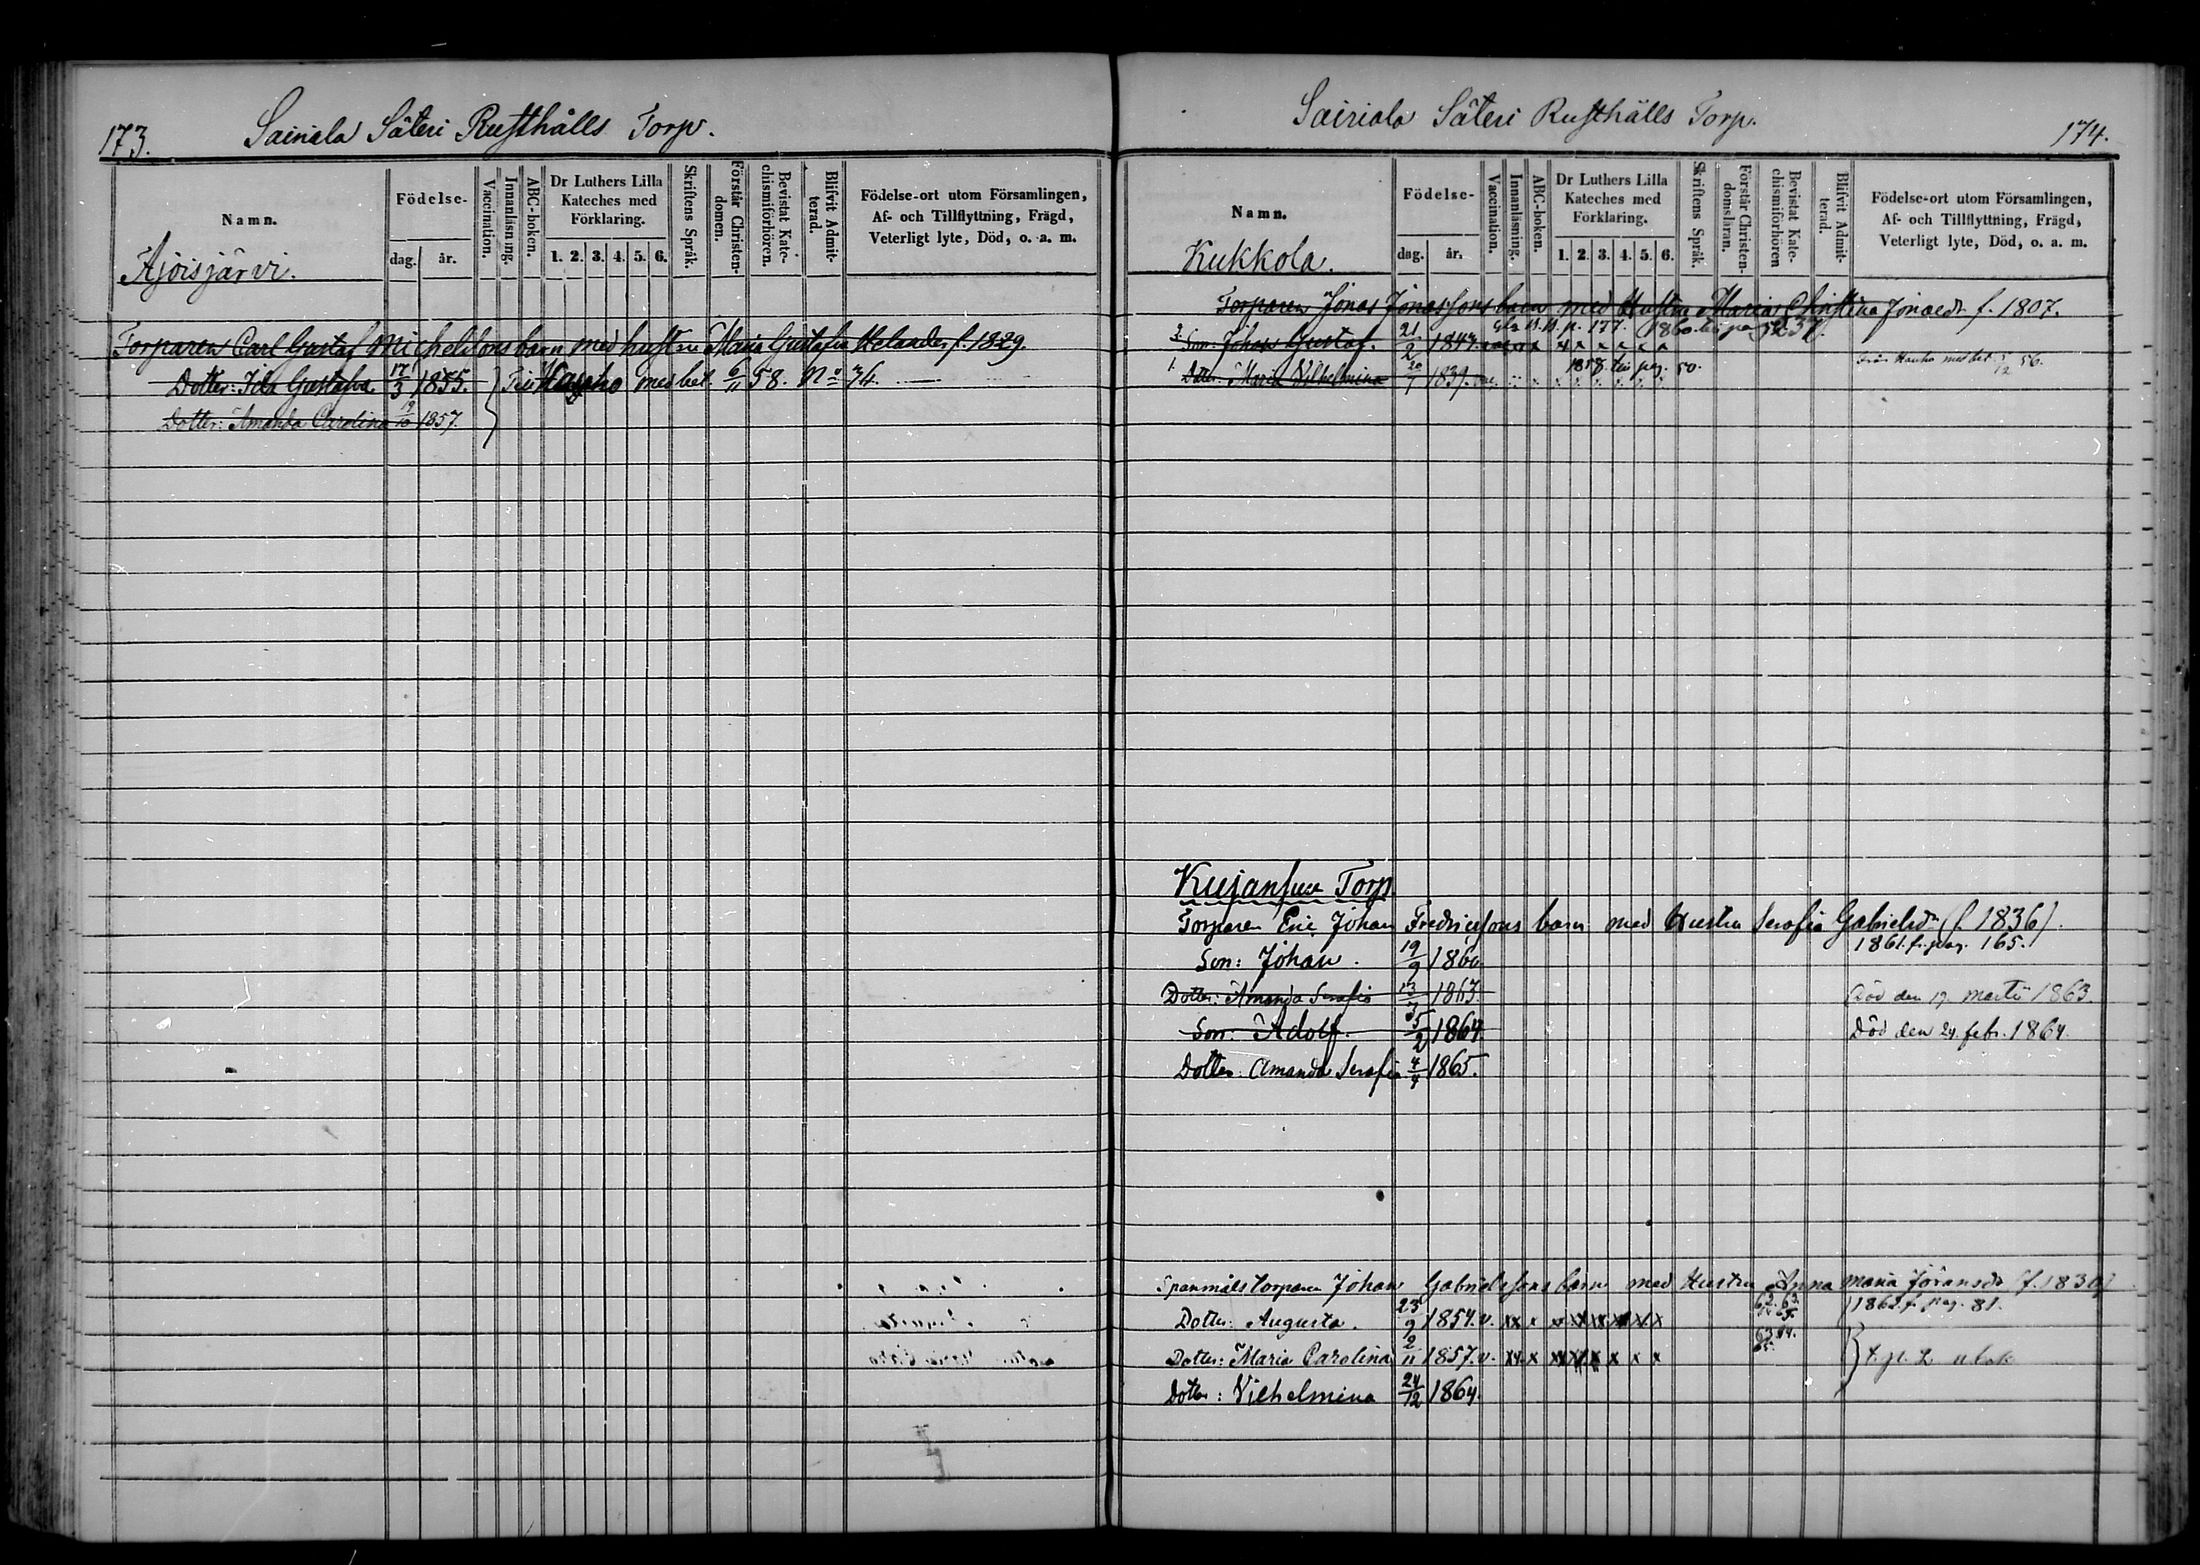 173.
Sairiala Säteri Rusthålls Torp.
Namn.
Födelse-
dag.
år.
Vaccination.
Innanläsning.
ABC-boken.
Dr Luthers Lilla Kateches med Förklaring.
1. 2. 3. 4. 5. 6.
Skriftens Språk.
Förstår Christen-domen.
Bevistat Kate-chismiförhören.
Blifvit Admit-terad.
Födelse-ort utom Församlingen,
Af- och Tillflyttning, Frägd,
Veterligt lyte, Död, o. a. m.
Ajoisjärvi.
Torparen Carl Gustaf Michelssons barn med hustru Maria Gustafva Helander f. 1829.
Dotter: Ida Gustafva 17/3 1855. Till Hauho med bet. 6/11 58. No 76.
Dotter: Amanda Carolina 19/10 1857.
Sairiala Säteri Rusthålls Torp.
174.
Namn.
Födelse-
dag.
år.
Vaccination.
Innanläsning.
ABC-boken.
Dr Luthers Lilla Kateches med Förklaring.
1. 2. 3. 4. 5. 6.
Skriftens Språk.
Förstår Christen-domsläran.
Bevistat Kate-chismiförhören
Blifvit Admit-terad.
Födelse-ort utom Församlingen,
Af- och Tillflyttning, Frägd,
Veterligt lyte, Död, o. a. m.
Kukkola.
Torparen Jonas Jonassons barn med Hustru Maria Christina Jonaedr f. 1807.
p. 177. 1860 till pag.
2. Son: Johan Gustaf. 21/2 1847. x x x x x x x
1858 till pag. 50.
från Hauho med bet. 56.
1. Dotter: Maria Vilhelmina 20/7 1839.
Kujansuu Torp
Torparen Eric Johan Fredricssons barn med Hustru Serafia Gabrielsdr (f. 1836).
1861 fr. pag. 165.
Son: Johan. 19/9 1860
Dotter: Amanda Serafia 13/3 1863. Död den 17 Martii 1863.
Son: Adolf. 5/2 1864. Död den 24 febr. 1864.
Dotter: Amanda Serafia 4/4 1865.
Spanmålstorparen Johan Gabrielssons barn med Hustru Anna Maria Jöransdr (f. 1830)
Dotter: Augusta. 23/9 1854. v. xx x x xx xx x x x 62. 63. 64. 65. 1862 f. pag. 81.
Dotter: Maria Carolina 2/11 1857. v. xx x xx xx x x x x 63. 64. 65.
Dotter: Vilhelmina 24/12 1864.